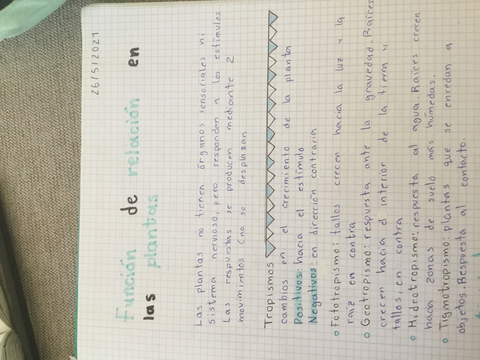 26/5/2021
Función de relación en
las plantas
Las plantas no tienen órganos sensoriales ni
sistema nervioso, pero responden a los estímulos
Las respuestas se producen mediante 2
movimientos (no se desplazan
Tropismos
cambios en el crecimiento de la planta
Positivos: hacia el estímulo
Negativos: en dirección contraria
Fototropismo: tallos crecen hacia la luz y la
raíz en contra
Geotropismo: respuesta ante la gravedad. Raíces
crecen hacia el interior de la tierra y
tallos, en contra
Hidrotropismo: respuesta al agua Raíces crecen
hacia zonas de suelo más húmedas.
Tigmotropismo: plantas que se enredan a
objetos. Respuesta al contacto.